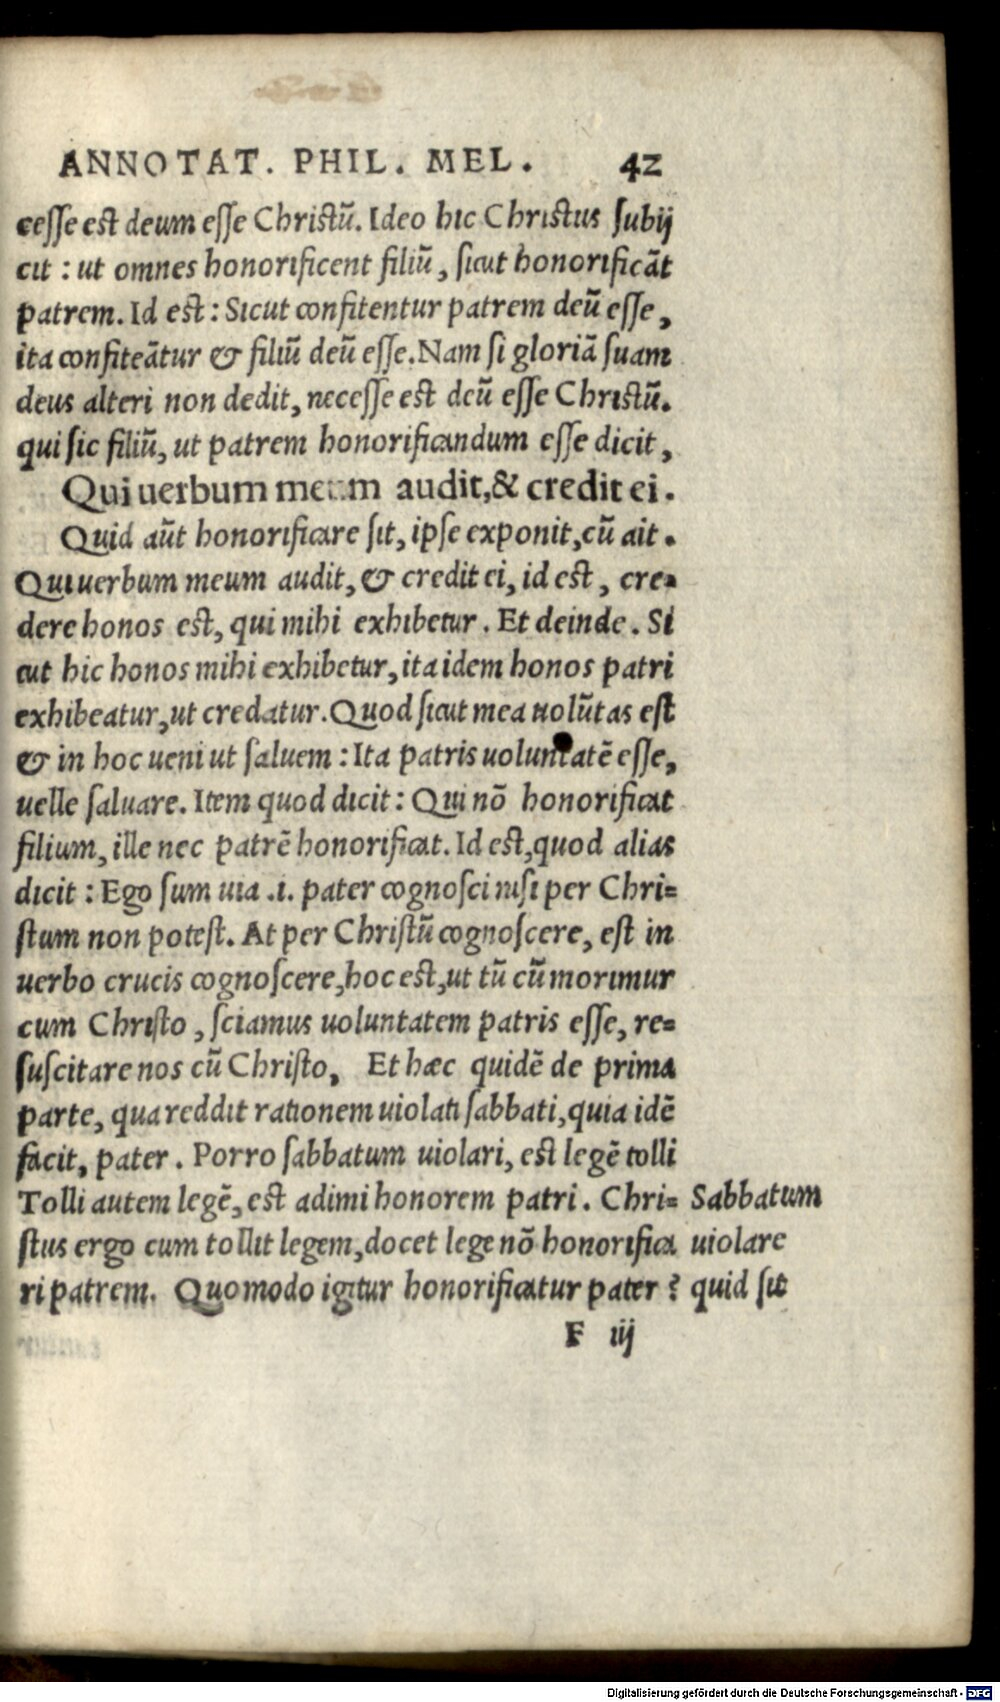 ANNOTAT. PHIL. MEL. 42
cesse est deum esse Christũ. Ideo hic Christus subij
cit : ut omnes honorificent filiũ, sicut honorificãt
patrem. Id est : Sicut confitentur patrem deũ esse,
ita confiteãtur & filiũ deũ esse. Nam si gloriã suam
deus alteri non dedit, necesse est deũ esse Christũ.
qui sic filiũ, ut patrem honorificandum esse dicit,
Qui uerbum meum audit, & credit ei.
Quid aũt honorificare sit, ipse exponit, cũ ait.
Qui uerbum meum audit, & credit ei, id est, cre-
dere honos est, qui mihi exhibetur. Et deinde. Si
cut hic honos mihi exhibetur, ita idem honos patri
exhibeatur, ut credatur. Quod sicut mea uolũtas est
& in hoc ueni ut saluem : Ita patris uoluntatẽ esse,
uelle saluare. Item quod dicit : Qui nõ honorificat
filium, ille nec patrẽ honorificat. Id est, quod alias
dicit : Ego sum uia .i. pater cognosci nisi per Chri=
stum non potest. At per Christũ cognoscere, est in
uerbo crucis cognoscere, hoc est, ut tũ cũ morimur
cum Christo, sciamus uoluntatem patris esse, re=
suscitare nos cũ Christo, Et hæc quidẽ de prima
parte, qua reddit rationem uiolati sabbati, quia idẽ
facit, pater. Porro sabbatum uiolari, est legẽ tolli
Tolli autem legẽ, est adimi honorem patri. Chri=
stus ergo cum tollit legem, docet lege nõ honorifica
ri patrem. Quomodo igitur honorificatur pater ?
Sabbatum
uiolare
quid sit
F iij
Digitalisierung gefördert durch die Deutsche Forschungsgemeinschaft - DFG